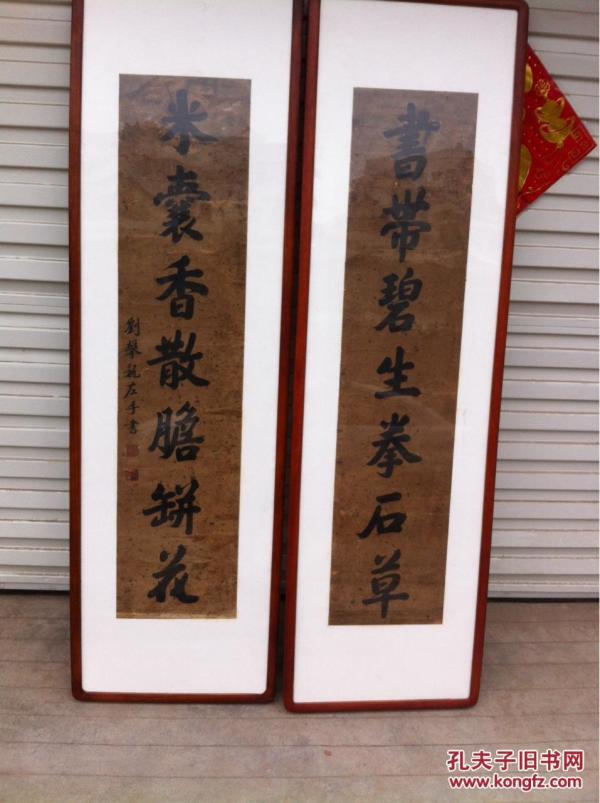 書帶碧生拳石草
米囊香散膽缾花
劉擊龍左手書
孔夫子旧书网
www.kongfz.com